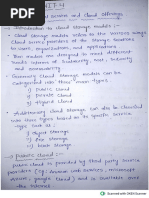 UNIT-4
Cloud Services and Cloud Offerings
Introduction to Cloud Storage models :-
Cloud Storage models refers to the various ways
Cloud service providers of the storage facilities
to users, organizations, and applications.
These models are designed to meet different
needs interms of Scalability, cost, security
and accessibility
Generally Cloud Storage models can be
categorized into three main types
1) public Cloud
2) private Cloud
3) Hybrid Cloud
Additionally Cloud Storage can also be classified
into three types based on its specific service
such as
1) Object Storage
2) File Storage
3) Block Storage
1) Public Cloud :-
public Cloud is provided by third party service
providers (Eg: Amazon web services, microsoft
google cloud) and is available over
the internet
Scanned with OKEN Scanner